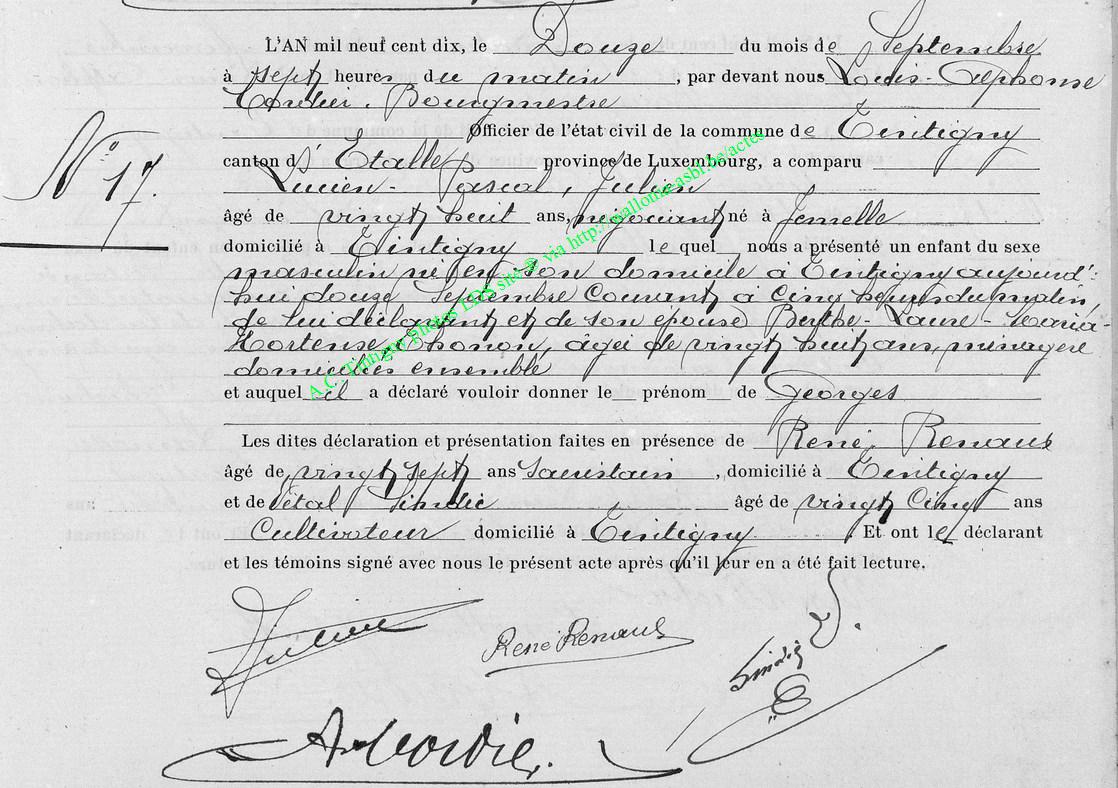 L'AN mil neuf cent dix, le Douze du mois de Septembre
à sept heures du matin, par devant nous Louis-Alphonse
Cordier, Bourgmestre
Officier de l'état civil de la commune de Tintigny
N° 17.
canton d'Etalle province de Luxembourg, a comparu
Lucien-Pascal, Julien
âgé de vingt huit ans, négociant né à Jemelle
domicilié à Tintigny lequel nous a présenté un enfant du sexe
masculin né en son domicile à Tintigny aujourd'
hui douze Septembre Courant à Cinq heures du matin,
de lui déclarant et de son épouse Berthe-Laure-Maria-
Hortense Thonon, agée de vingt huit ans, ménagère
domiciliés ensemble
et auquel il a déclaré vouloir donner le prénom de Georges
Les dites déclaration et présentation faites en présence de René, Renaux
âgé de vingt sept ans Sacristain, domicilié à Tintigny
et de Vital Sindic âgé de vingt Cinq ans
Cultivateur domicilié à Tintigny. Et ont le déclarant
et les témoins signé avec nous le présent acte après qu'il leur en a été fait lecture.
Julien
René Renaux
Sindic V.
A. Cordier.
A.C. Tintigny photos LDS site © via http://mallorie.asbl.be/actes